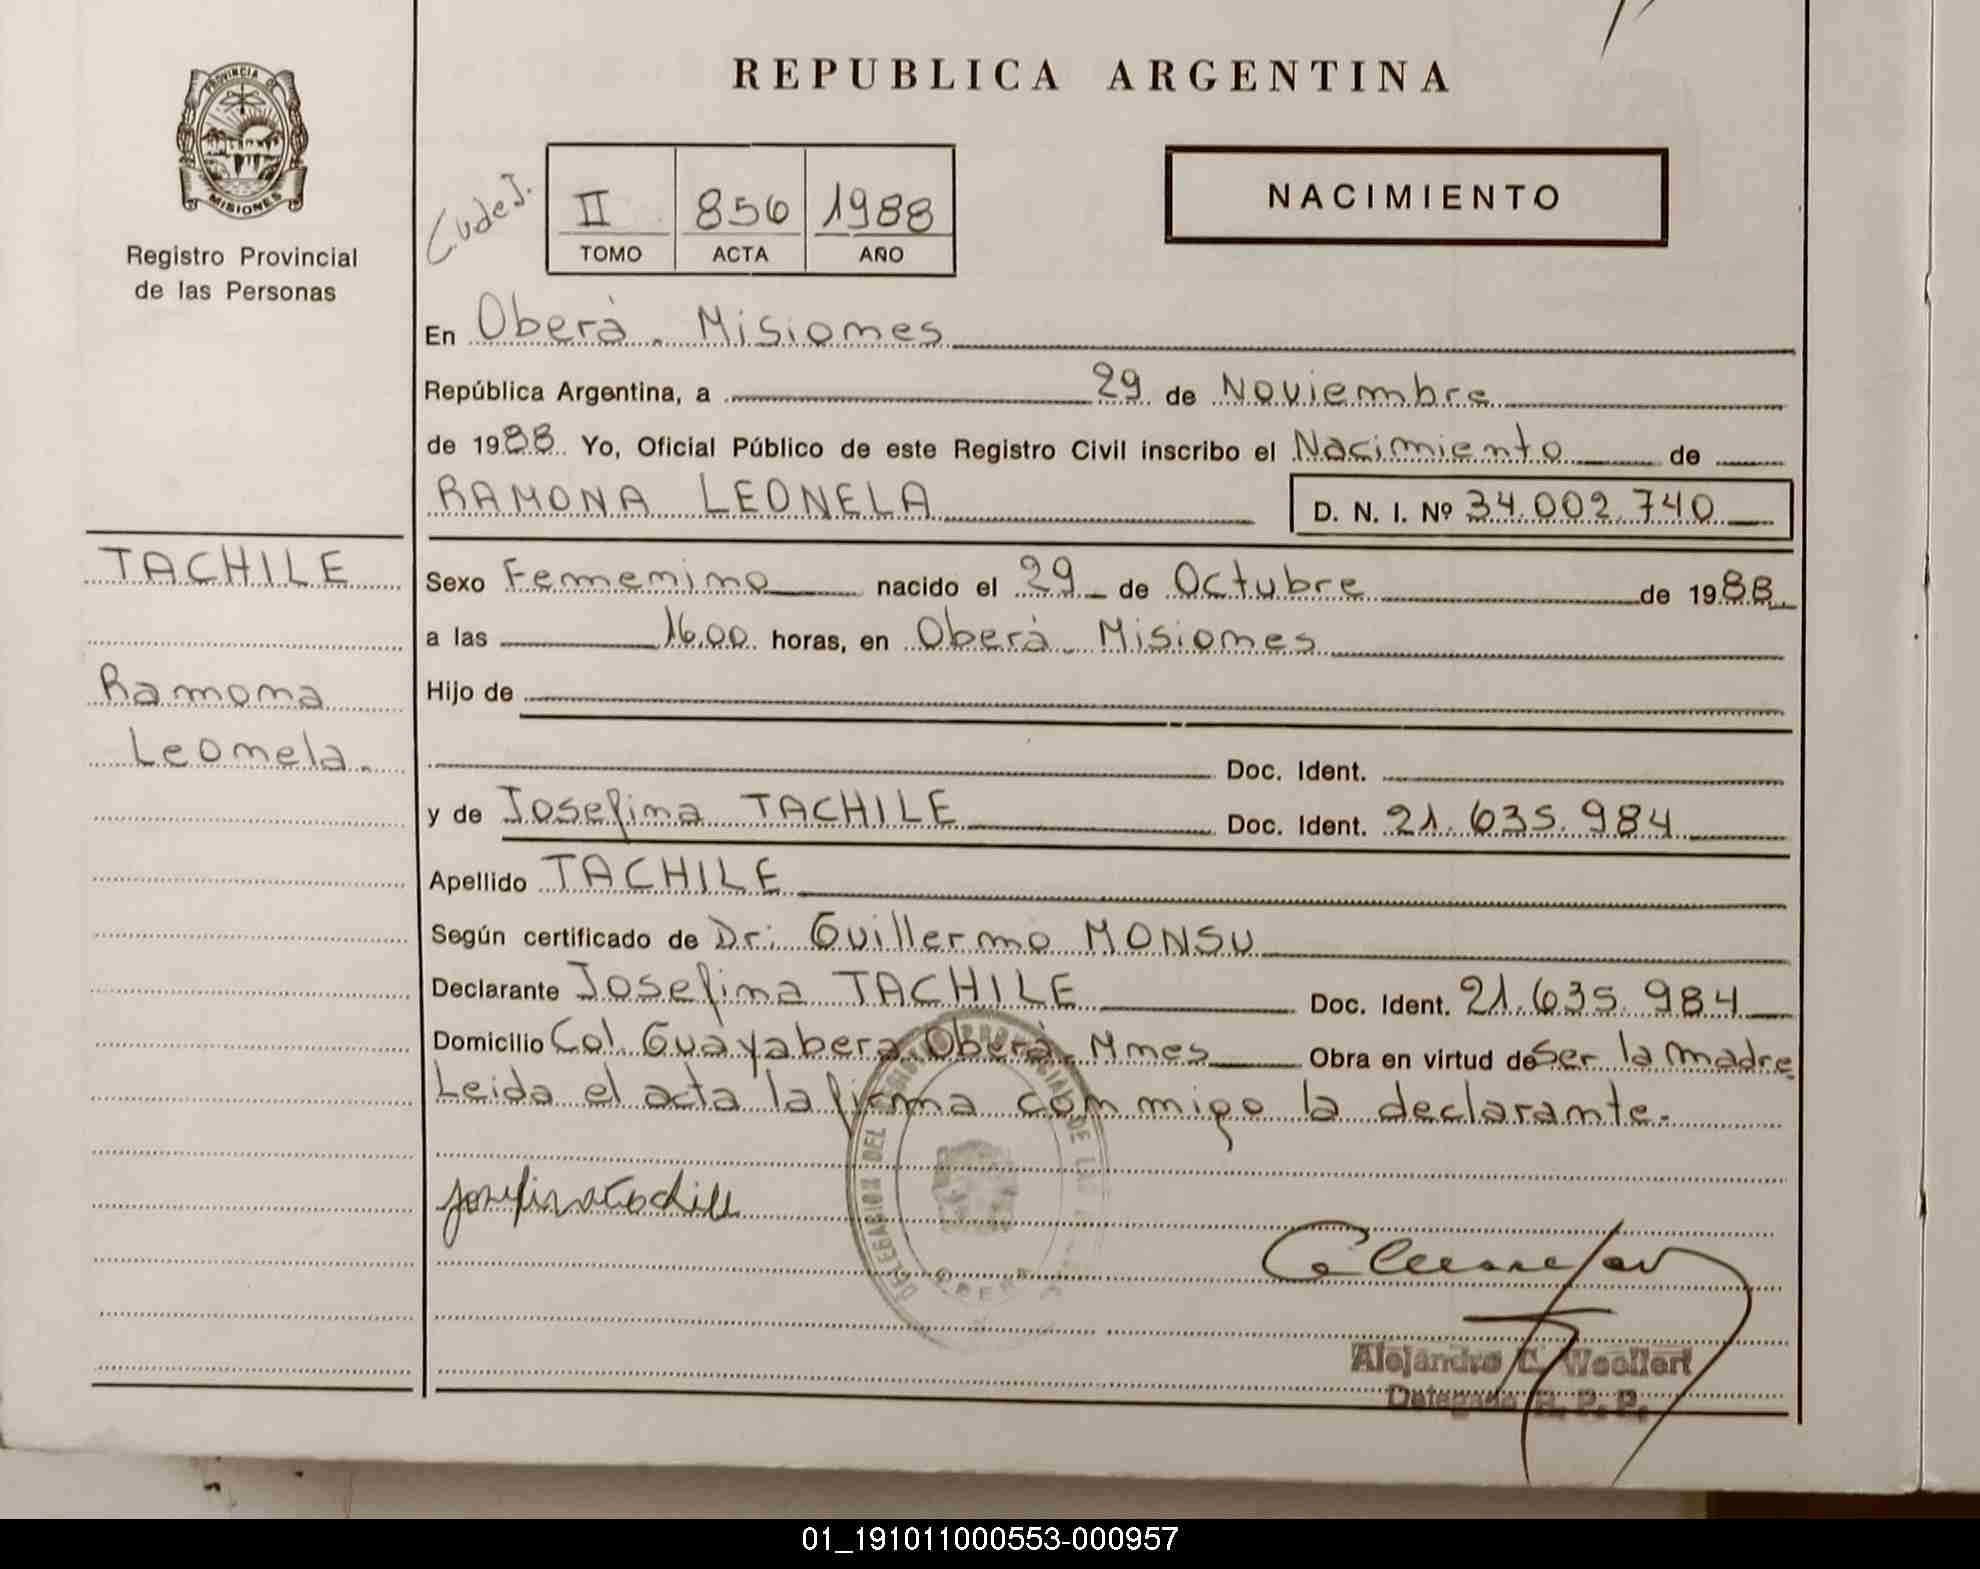 REPUBLICA ARGENTINA
PROVINCIA DE
MISIONES
Registro Provincial
de las Personas
II 856 1988
TOMO ACTA AÑO
NACIMIENTO
En Oberà. Misiones
República Argentina, a 29 de Noviembre
de 1988 Yo, Oficial Público de este Registro Civil inscribo el Nacimiento de
RAMONA LEONELA D. N. I. Nº 34.002.740
TACHILE
Ramona
Leonela.
Sexo Femenino nacido el 29 de Octubre de 1988
a las 16.00 horas, en Oberà. Misiones
Hijo de
Doc. Ident.
y de Josefina TACHILE Doc. Ident. 21.635.984
Apellido TACHILE
Según certificado de Dr: Guillermo MONSU
Declarante Josefina TACHILE Doc. Ident. 21.635.984
Domicilio Col. Guayabera Oberà. Mnes Obra en virtud de Ser la madre.
Leida el acta la firma conmigo la declarante.
DELEGACION DEL REGISTRO PROVINCIAL DE LAS
OBERA
Alejandro C. Woollert
Delegado R. P. P.
01_191011000553-000957